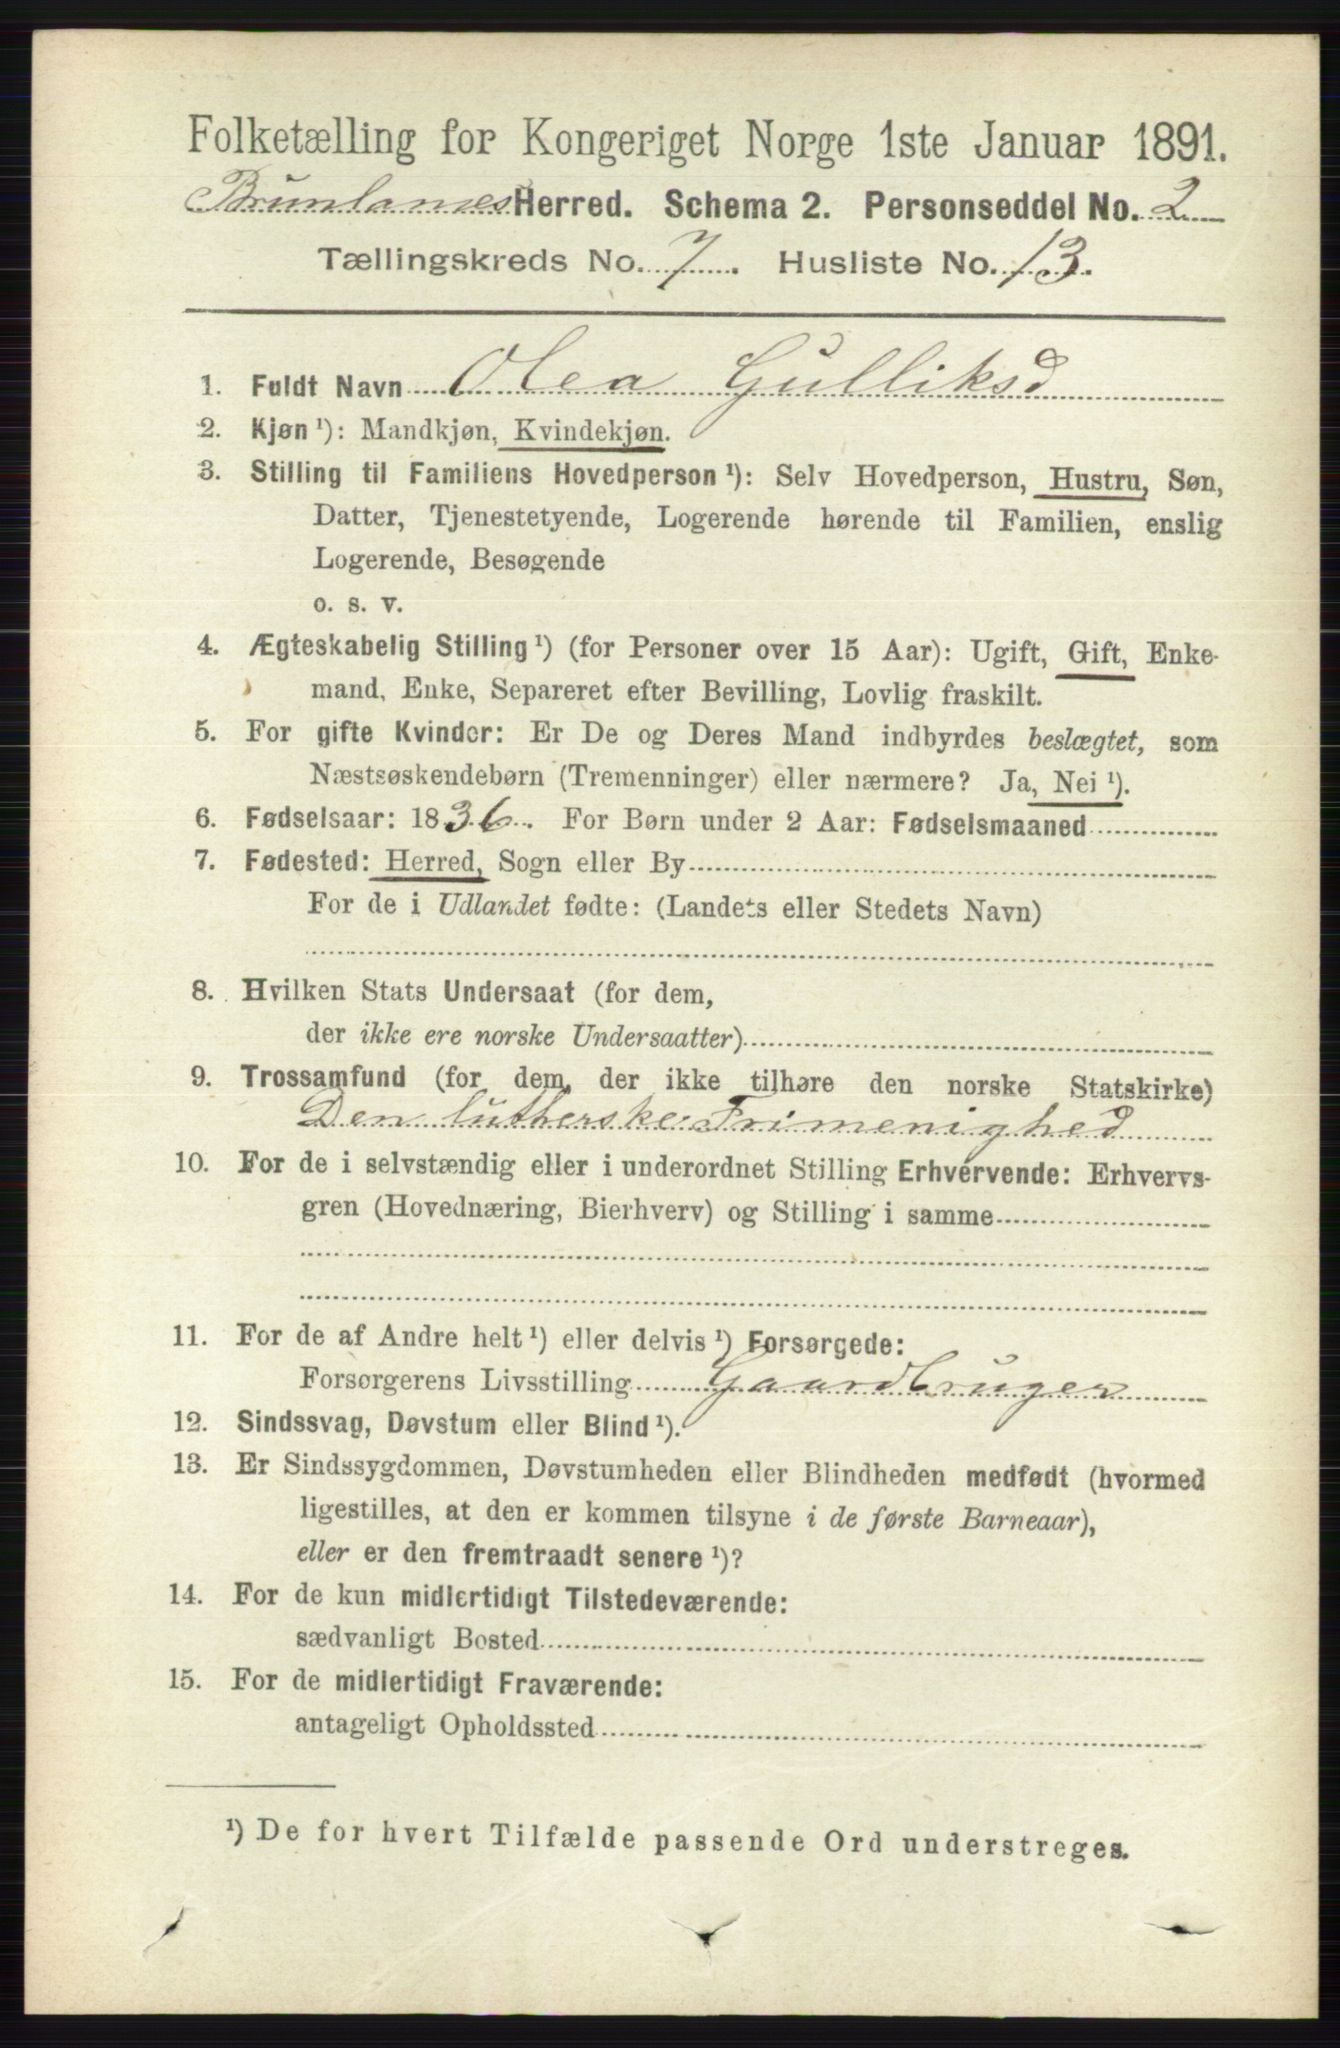 Folketælling for Kongeriget Norge 1ste Januar 1891.
Brunlanes Herred. Schema 2. Personseddel No. 2
Tællingskreds No. 7. Husliste No. 13.
1. Fuldt Navn Olea Gulliksd
2. Kjøn ¹): Mandkjøn, Kvindekjøn.
3. Stilling til Familiens Hovedperson ¹): Selv Hovedperson, Hustru, Søn,
Datter, Tjenestetyende, Logerende hørende til Familien, enslig
Logerende, Besøgende
o. s. v.
4. Ægteskabelig Stilling ¹) (for Personer over 15 Aar): Ugift, Gift, Enke-
mand, Enke, Separeret efter Bevilling, Lovlig fraskilt.
5. For gifte Kvinder: Er De og Deres Mand indbyrdes beslægtet, som
Næstsøskendebørn (Tremenninger) eller nærmere? Ja, Nei ¹).
6. Fødselsaar: 1836. For Børn under 2 Aar: Fødselsmaaned
7. Fødested: Herred, Sogn eller By
For de i Udlandet fødte: (Landets eller Stedets Navn)
8. Hvilken Stats Undersaat (for dem,
der ikke ere norske Undersaatter)
9. Trossamfund (for dem, der ikke tilhøre den norske Statskirke)
Den lutherske Frimenighed
10. For de i selvstændig eller i underordnet Stilling Erhvervende: Erhvervs-
gren (Hovednæring, Bierhverv) og Stilling i samme
11. For de af Andre helt ¹) eller delvis ¹) Forsørgede:
Forsørgerens Livsstilling Gaardbruger
12. Sindssvag, Døvstum eller Blind ¹).
13. Er Sindssygdommen, Døvstumheden eller Blindheden medfødt (hvormed
ligestilles, at den er kommen tilsyne i de første Barneaar),
eller er den fremtraadt senere ¹)?
14. For de kun midlertidigt Tilstedeværende:
sædvanligt Bosted
15. For de midlertidigt Fraværende:
antageligt Opholdssted
¹) De for hvert Tilfælde passende Ord understreges.